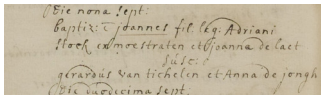 Die nona sept:
baptiz: ē joannes fil. leg: Adriani
stock ex moestraten et joanna de laet
susc:
gerardus van tichelen et Anna de jongh
Die duodecima sept.